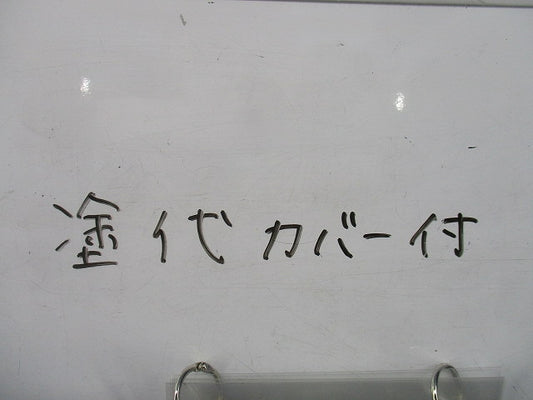 塗代カバー付